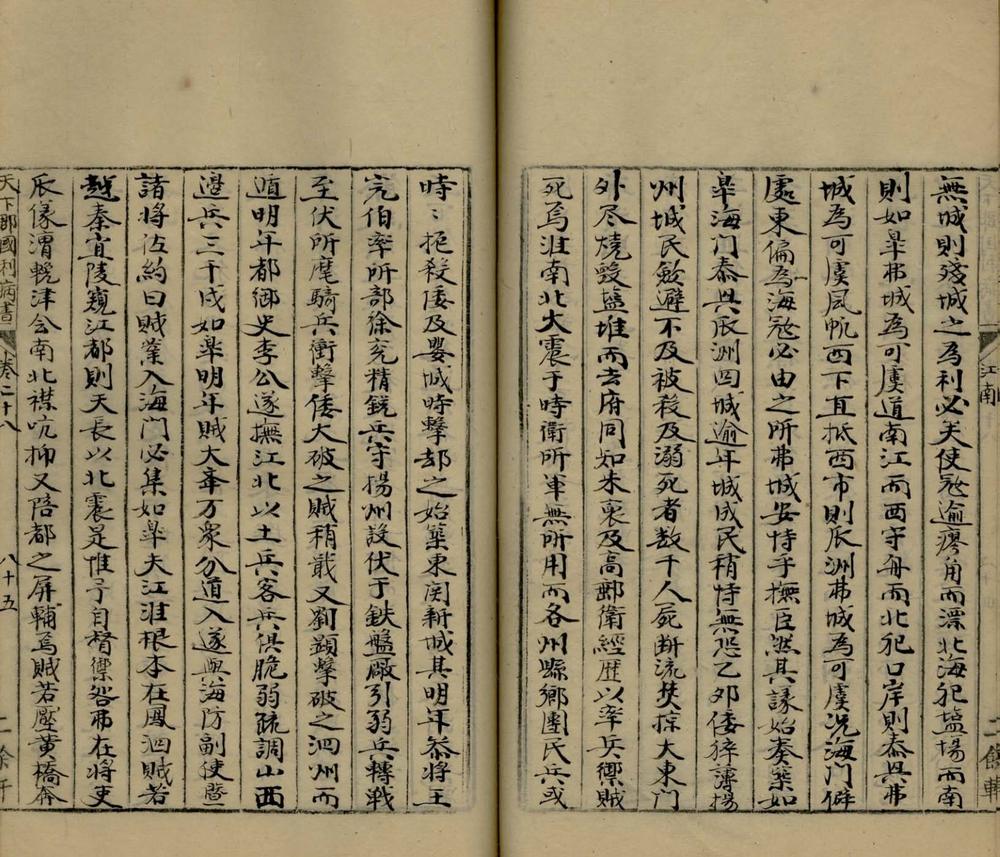 無城則殘城之為利必矣使冦逾廖角而漂北海犯塩場而南
則如臯弗城為可虞道南江而西守舟而北犯口岸則泰興弗
城為可虞風帆西下直抵西市則瓜洲弗城為可虞况海門僻
處東偏為海冦必由之所弗城安恃乎撫臣然其議始奏築如
臯海門泰興瓜洲四城逾年城成民稍恃無恐乙夘倭猝薄揚
州城民斂避不及被殺及溺死者数千人死斷流焚掠大東門
外尽燒毀塩堆而去府同知朱裒及高郵衛經歴以率兵禦賊
死焉淮南北大震于時衛所軍無所用而各州縣鄉團民兵或
時〻扼殺倭及嬰城時擊却之始築東関新城其明年叅將王
完伯率所部徐兖精銳兵守揚州設伏于鉄盤厰引弱兵轉戰
至伏所麾騎兵衝擊倭大破之賊稍戢又劉顯擊破之泗州而
遁明年都御史李公遂撫江北以土兵客兵俱脆弱疏調山西
邉兵三千戍如臯明年賊大奉万衆分道入遂與海防副使
諸將佐約曰賊業入海門必集如臯夫江淮根本在鳳泗賊若
越秦宜陵窺江都則天長以北震是惟予自督禦咎弗在將吏
瓜儀漕輓津会南北襟吭抑又陪都之屏輔焉賊若壓黄橋奔
天下郡國利病書
卷二十八
八十五
江南